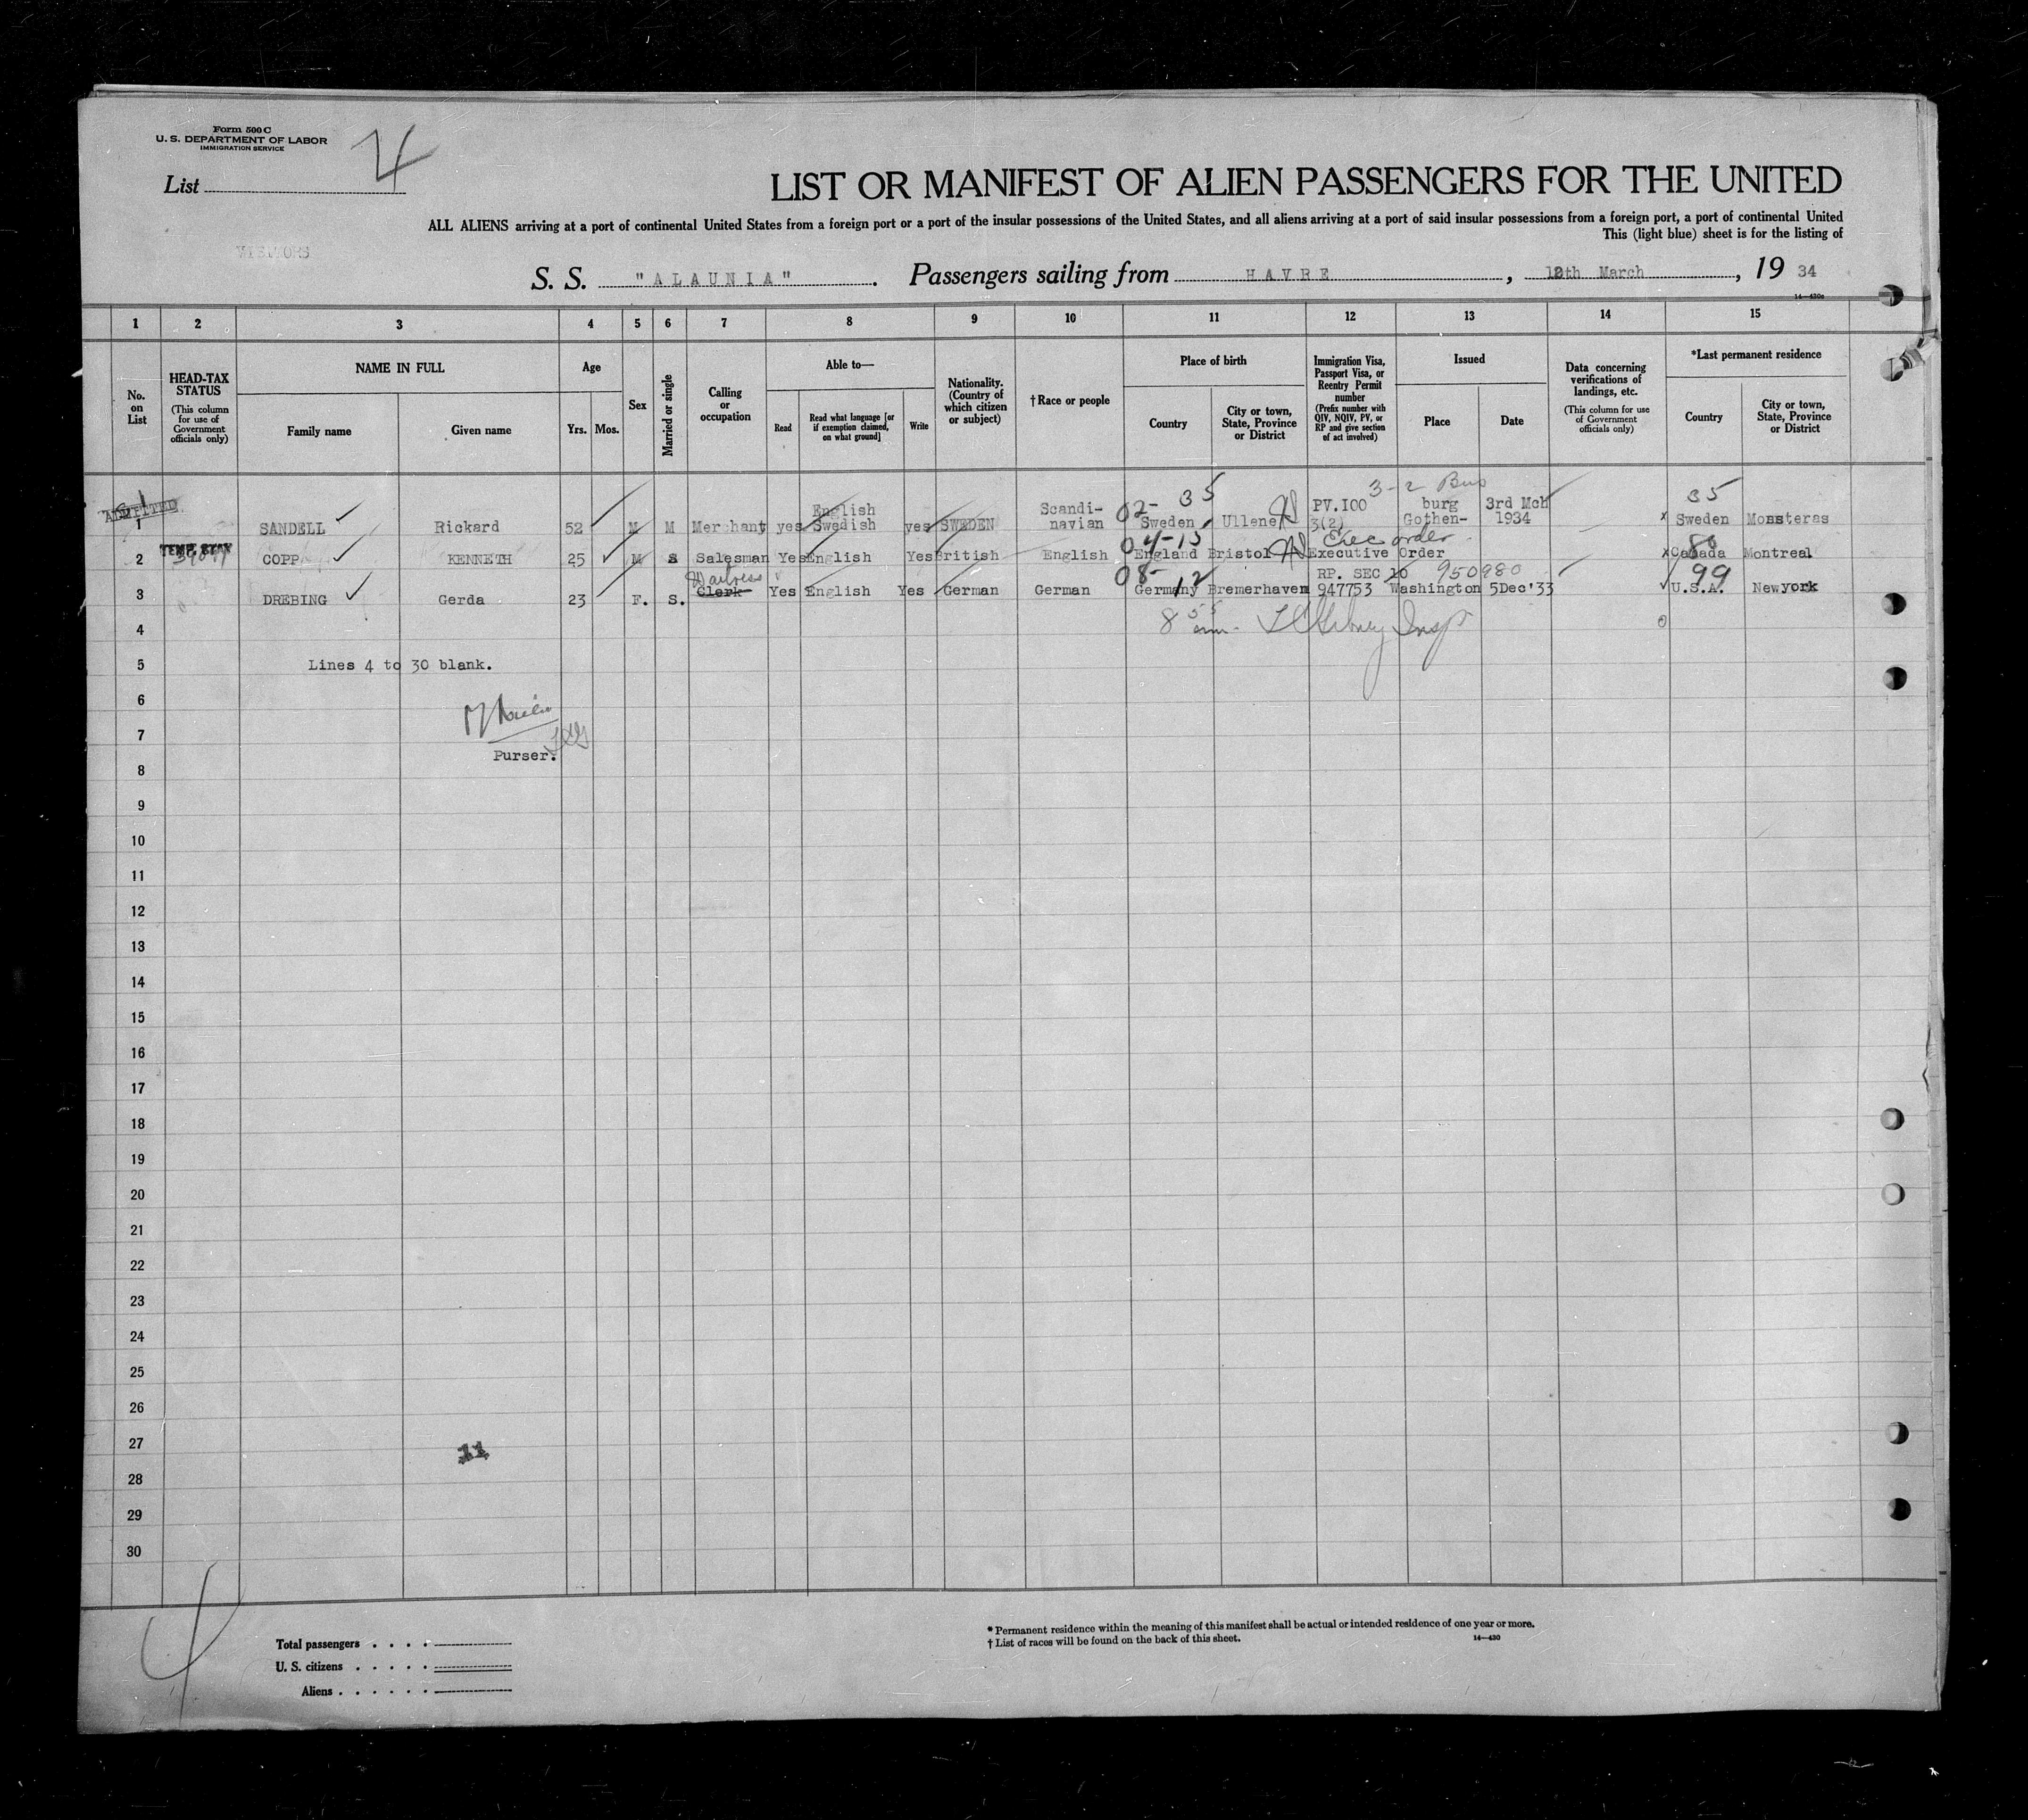 Form 500 C
U. S. DEPARTMENT OF LABOR
IMMIGRATION SERVICE
List 4
LIST OR MANIFEST OF ALIEN PASSENGERS FOR THE UNITED
ALL ALIENS arriving at a port of continental United States from a foreign port or a port of the insular possessions of the United States, and all aliens arriving at a port of said insular possessions from a foreign port, a port of continental United
This (light blue) sheet is for the listing of
VISITORS
S. S. "ALAUNIA". Passengers sailing from HAVRE, March, 19 34
14—430c
1 2 3 4 5 6 7 8 9 10 11 12 13 14 15
No. on List
HEAD-TAX STATUS (This column for use of Government officials only)
NAME IN FULL
Family name Given name
Age
Yrs. Mos.
Sex
Married or single
Calling or occupation
Able to—
Read
Read what language [or if exemption claimed, on what ground]
Write
Nationality. (Country of which citizen or subject)
† Race or people
Place of birth
Country
City or town, State, Province or District
Immigration Visa, Passport Visa, or Reentry Permit number (Prefix number with QIV, NQIV, PV, or RP and give section of act involved)
Issued
Place Date
Data concerning verifications of landings, etc. (This column for use of Government officials only)
*Last permanent residence
Country
City or town, State, Province or District
ADMITTED 02- 35 3-2 Bus 35
1 SANDELL Rickard 52 M M Merchant yes English Swedish yes SWEDEN Scandi-navian Sweden Ullene PV.100 3(2) burg Gothen- 3rd Mch 1934 x Sweden Monsteras
TEMP. STAY 04-15 Exec order 80
2 COPP KENNETH 25 M S Salesman Yes English Yes British English England Bristol Executive Order x Canada Montreal
Waitress 08-12 RP. SEC 10 950980 99
3 DREBING Gerda 23 F. S. Clerk Yes English Yes German German Germany Bremerhaven 947753 Washington 5Dec'33 U.S.A. Newyork
4 8 55 Insp 0
5 Lines 4 to 30 blank.
6
7
Purser.
8
9
10
11
12
13
14
15
16
17
18
19
20
21
22
23
24
25
26
27
11
28
29
30
4
Total passengers
U. S. citizens
Aliens
* Permanent residence within the meaning of this manifest shall be actual or intended residence of one year or more.
† List of races will be found on the back of this sheet.
14—430